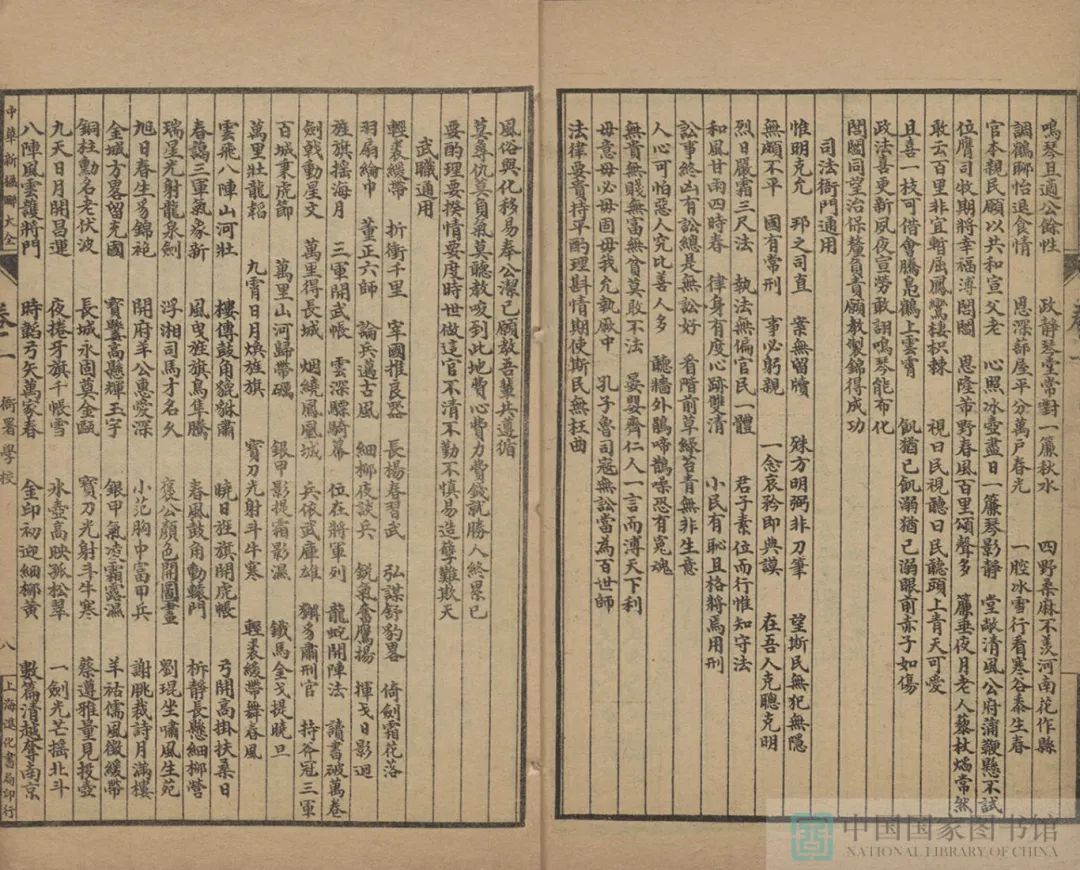 鳴琴且適公餘性　政靜琴堂常對一簾秋水　四野桑麻不羨河南花作縣
調鶴聊怡退食情　恩深蔀屋平分萬戶春光　一腔冰雪行看寒谷黍生春
官本親民願以共和宣父老　心照冰壺盡日一簾琴影靜　堂敞清風公府蒲鞭懸不試
位膺司牧期將幸福溥閭閻　恩隆芾野春風百里頌聲多　簾垂夜月老人藜杖爇常然
敢云百里非宜暫屈鳳鸞棲枳棘　視曰民視聽曰民聽頭上青天可愛
且喜一枝可借會騰鳧鶴上雲霄　飢猶己飢溺猶己溺眼前赤子如傷
政法喜更新夙夜宣勞敢詡鳴琴能布化
閭閻同望治保釐負責願教製錦得成功
司法衙門通用
惟明克允　邦之司直　案無留牘　殊方明弼非刀筆　望斯民無犯無隱
無頗不平　國有常刑　事必躬親　一念哀矜即典謨　在吾人克聰克明
烈日嚴霜三尺法　執法無偏官民一體　君子素位而行惟知守法
和風甘雨四時春　律身有度心跡雙清　小民有恥且格將焉用刑
訟事終凶有訟總是無訟好　看階前草綠苔青無非生意
人心可怕惡人究比善人多　聽牆外鵑啼鵲噪恐有冤魂
無貴無賤無富無貧莫敢不法　晏嬰齊仁人一言而溥天下利
毋意毋必毋固毋我允執厥中　孔子魯司寇無訟當為百世師
法律要貴持平酌理斟情期使斯民無枉曲
風俗興化移易奉公潔己願教吾輩共遵循
莫尋仇莫負氣莫聽教唆到此地費心費力費錢就勝人終累己
要酌理要揆情要度時世做這官不清不勤不慎易造孽難欺天
武職通用
輕裘緩帶　折衝千里　宰國推良器　長揚春習武　弘謀舒豹略　倚劍霜花落
羽扇綸巾　董正六師　論兵邁古風　細柳夜談兵　銳氣奮鷹揚　揮戈日影迴
旌旗搖海月　三軍開武帳　雲深驃騎幕　位在將軍列　龍蛇開陣法　讀書破萬卷
劍戟動星文　萬里得長城　烟繞鳳凰城　兵依武庫雄　獬豸肅刑官　持斧冠三軍
百城秉虎節　萬里山河歸帶礪　銀甲影提霜影濕　鐵馬金戈提曉旦
萬里壯龍韜　九霄日月煥旌旗　寶刀光射斗牛寒　輕裘緩帶舞春風
雲飛八陣山河壯　樓傳鼓角貔貅肅　曉日旌旗開虎帳　弓開高掛扶桑日
春謁三軍氣象新　風曳旌旗鳥隼騰　春風鼓角動轅門　柝靜長懸細柳營
瑞星光射龍泉劍　浮湘司馬才名久　褒公顏色開圖畫　劉琨坐嘯風生苑
旭日春生豸錦袍　開府羊公惠愛深　小范胸中富甲兵　謝朓裁詩月滿樓
金城方畧留充國　寶鑒高懸輝玉宇　銀甲氣凌霜露濕　羊祜儒風徵緩帶
銅柱勳名老伏波　長城永固奠金甌　寶刀光射斗牛寒　蔡遵雅量見投壺
九天日月開昌運　夜捲牙旗千帳雪　冰壺高映孤松翠　一劍光芒搖北斗
八陣風雲護將門　時韜弓矢萬家春　金印初迎細柳黃　數篇清越奪南京
中華新楹聯大全
卷二　衙署學校　八
上海進化書局印行
中国国家图书馆
NATIONAL LIBRARY OF CHINA